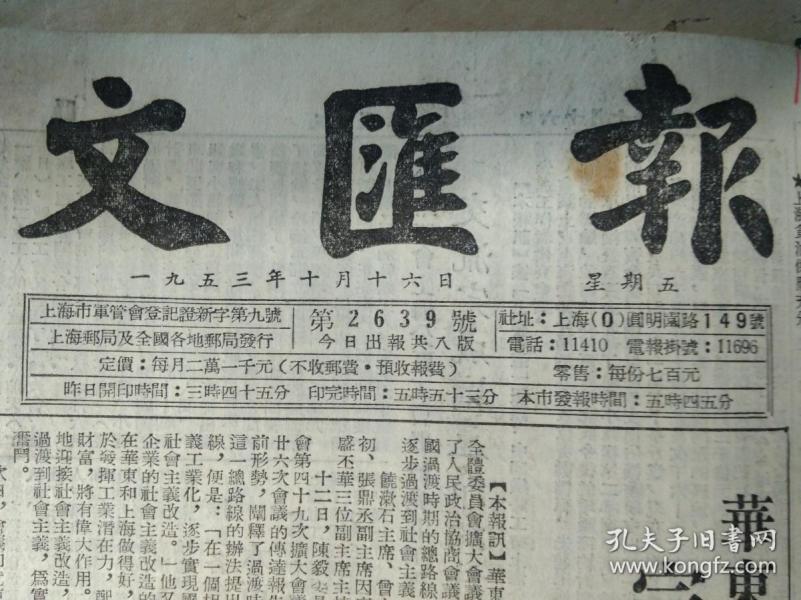 文匯報
一九五三年十月十六日 星期五
上海市軍管會登記證新字第九號
上海郵局及全國各地郵局發行
第2639號
今日出報共八版
社址：上海(0)圓明園路149號
電話：11410 電報掛號：11696
定價：每月二萬一千元（不收郵費·預收報費）
零售：每份七百元
昨日開印時間：三時四十五分 印完時間：五時五十三分 本市發報時間：五時四五分
華東
【本報訊】華東
全體委員會擴大會議
了人民政治協商會議
國過渡時期的總路線
逐步過渡到社會主義
饒漱石主席、曾
初、張鼎丞副主席因
盛丕華三位副主席主
十二日，陳毅
會第四十九次擴大會議
廿六次會議的傳達報
前形勢，闡釋了過渡
這一總路線的辦法提出
線，便是：「在一個相
義工業化，逐步實現
社會主義改造。」他又
企業的社會主義改造的
在華東和上海做得好，
於發揮工業潛在力，
財富，將有偉大作用。
地迎接社會主義改造，
過渡到社會主義，爲實
奮鬥。
孔夫子旧书网